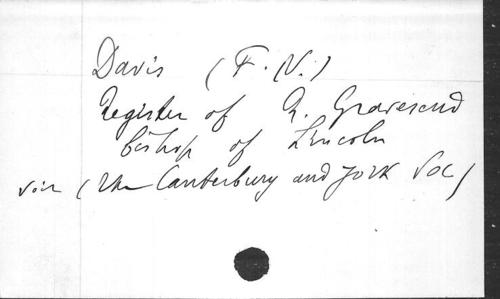 Davis (F. N.)
Register of R. Gravesend
bishop of Lincoln
voir (The Canterbury and York Soc)